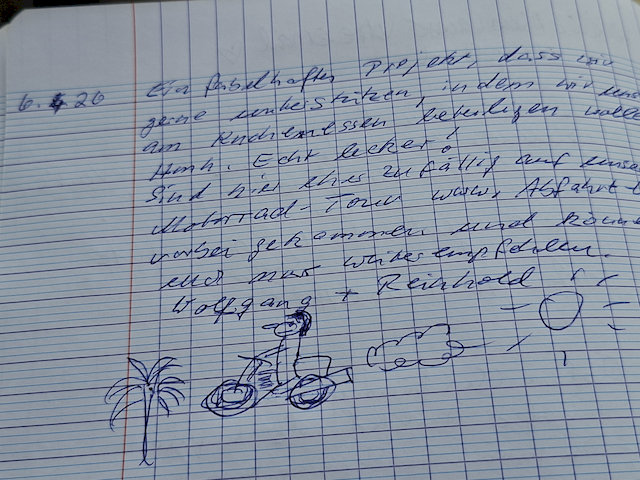 6. 4. 26 Ein fabelhaftes Projekt, dass wir
gerne unterstützen, indem wir uns
am Kuchenessen beteiligen wollen
Hmh. Echt lecker!
Sind hier eher zufällig auf unsrer
Motorrad-Tour www. Abfahrt-
vorbei gekommen und können
nur weiterempfehlen.
Wolfgang + Reinhold